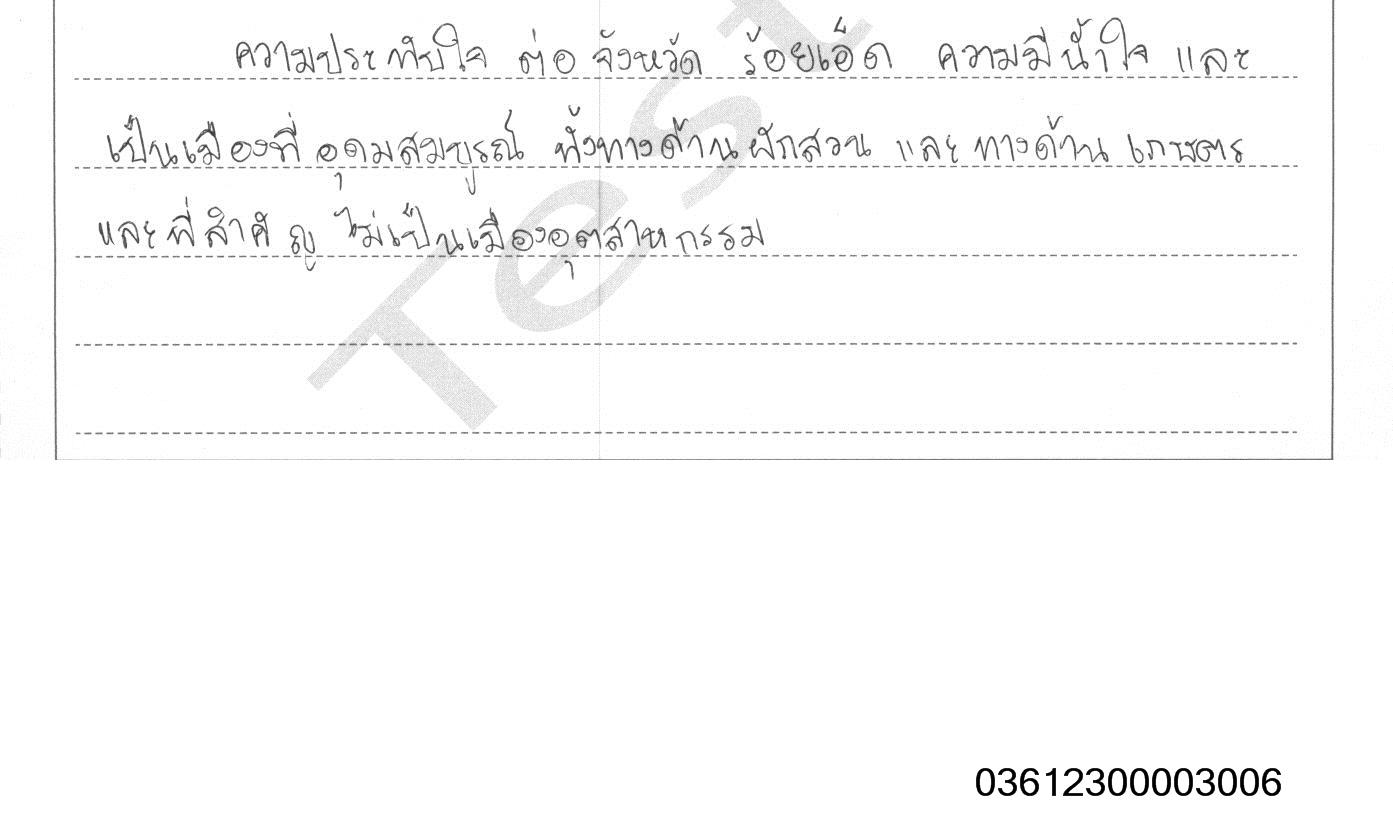 ความประทับใจ ต่อ จังหวัด ร้อยเอ็ด ความมีน้ำใจ และ
เป็นเมืองที่ อุดมสมบูรณ์ ทั้งทางด้านผักสวน และ ทางด้าน เกษตร
และที่สำคัญ ไม่เป็นเมืองอุตสาหกรรม
Test
03612300003006